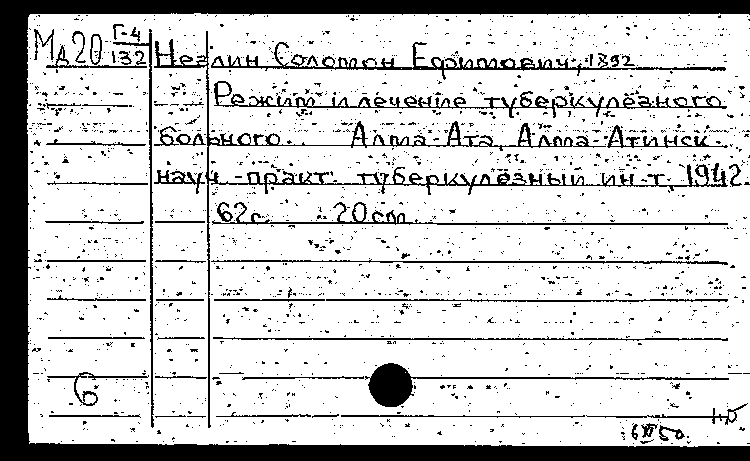 Мд20 Г-4/132 Незлин Соломон Ефимович, 1892
Режим и лечение туберкулезного
больного. Алма-Ата, Алма-Атинск.
науч.-практ. туберкулезный ин-т, 1942.
62 с. 20 cm.
6
6 XII 50